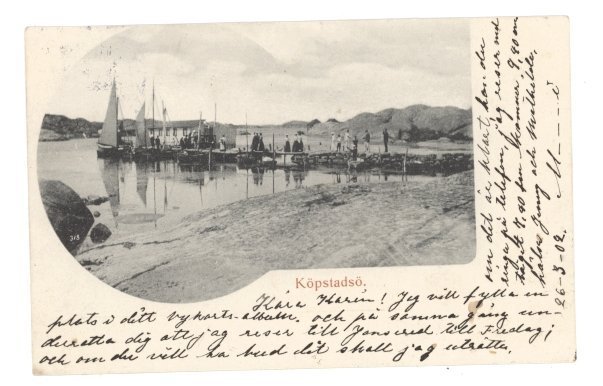 Köpstadsö.
313
Kära Karin! Jeg vill fylla en
plats i ditt vykorts-album. och på samma gång un-
derrätta dig att jag reser till Jonsered till Fredag;
och om du vill ha bud dit skall jag uträtta.
om det är klart kan du
ringa på telefon, jag reser med
tåget 8,20 som kommer 9,20 em
hälsa Jenny och Mathilda,
M---i
26-3-02.